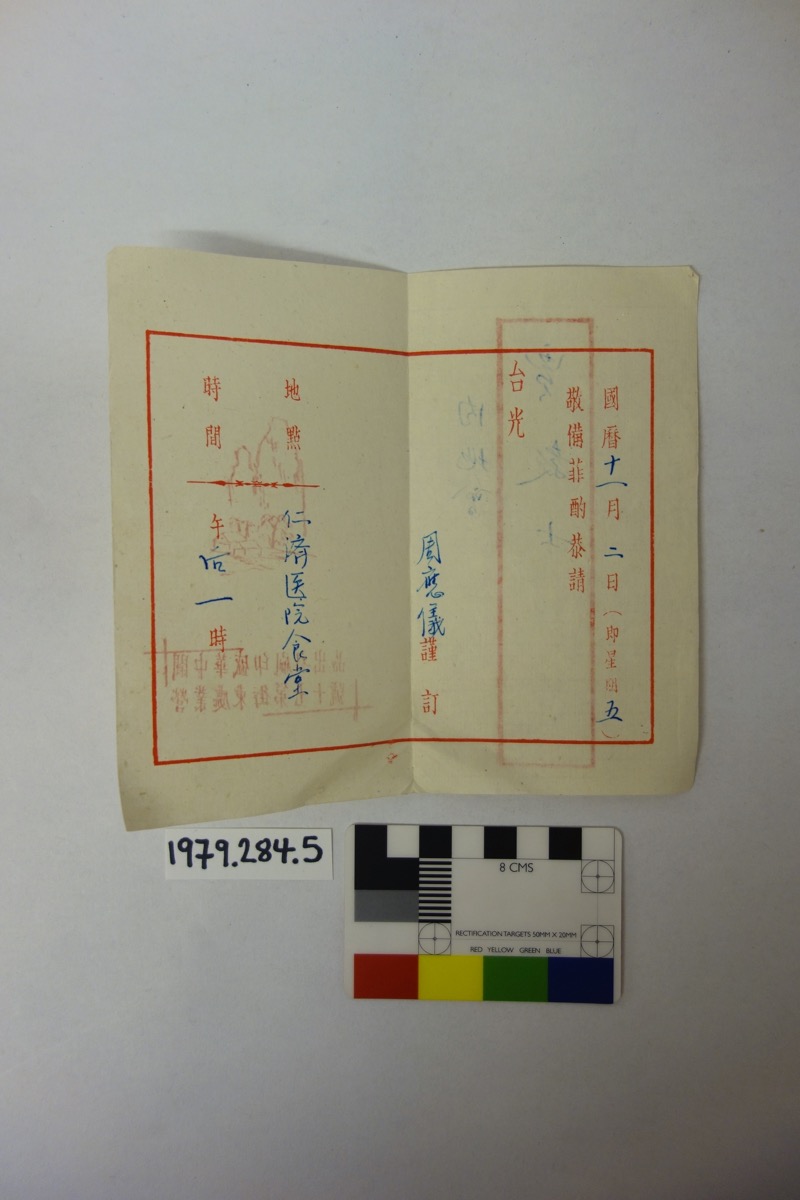 國曆十一月二日(即星期五)
敬備菲酌恭請
台光
周應儀謹訂
地點 仁濟医院食堂
時間 午后一時
1979.284.5
8 CMS
RECTIFICATION TARGETS 50MM X 20MM
RED YELLOW GREEN BLUE